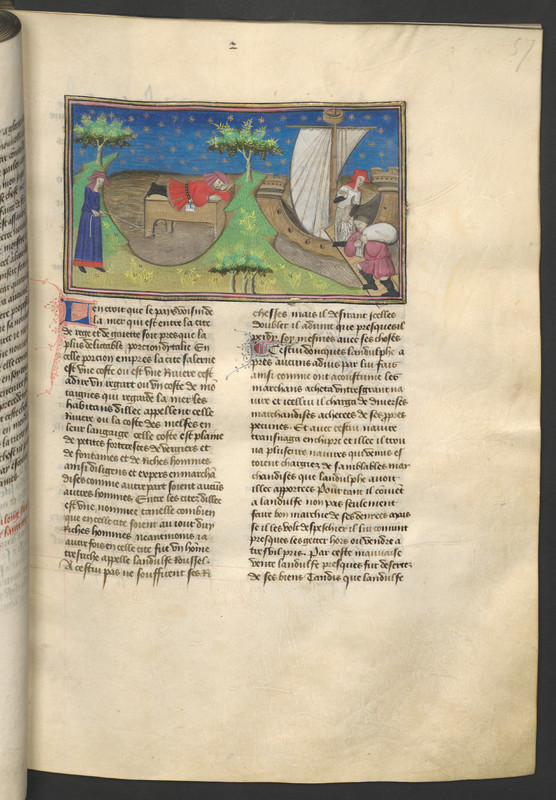 57
Len croit que le pays voisin de
la mer qui est entre la cite
de rege et de gaiette soit presque la
plus delitable porcion dytalie En
celle porcion empres la cite salerne
est une coste ou est une Riviere cest
adire un regart ou un coste de mo
taignes qui regarde la mer les
habitans dillec appellent celle
Riviere ou la coste des melfes en
leur langaige celle coste est plaine
de petites forteresses de vergiers et
de fontaines et de Riches hommes
ainsi diligens et expers en marcha
dises comme autre part soient aucus
autres hommes Entre les citez dillec
est une nommee ravelle combien
que en celle cite soient au iour duy
Riches hommes neantmoins ia
autre fois en celle cite fut un home
tresriche appelle landulfe roussel
A cestui pas ne souffirent ses Ri
chesses mais il desirant icelles
doubler il advint que presques il
perdy soy mesmes avec ses choses
Cestui doncques landulphe a
pres aucuns advis par lui fais
ainsi comme ont acoustume les
marchans acheta un tresgrant na
vire et icellui il charga de diverses
marchandises achetees de ses propres
pecunes Et avec cestui navire
transnaga en chipre et illec il trou
va pluseurs navires qui venus es
toient chargiez de samblables mar
chandises que landulphe avoit
illec apportees Pour tant il covient
a landulfe non pas seulement
faire bon marchie de ses denrees mais
se il les volt despeschier il lui convint
presques les getter hors ou vendre a
tresvil pris. Par ceste mauvaise
vente landulfe presques fut desertez
de ses biens Tandis que landulfe